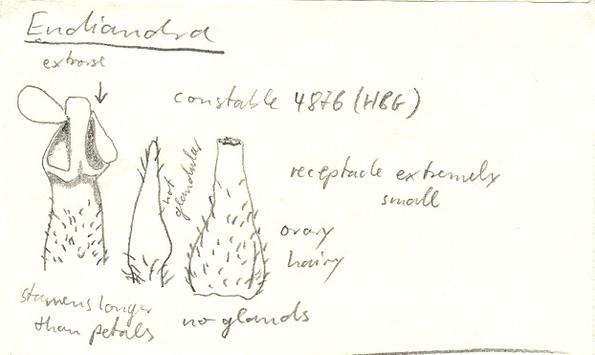 Endiandra
extrorse
constable 4876 (HBG)
not
glandular
receptacle extremely
small
ovary
hairy
stamens longer
than petals
no glands